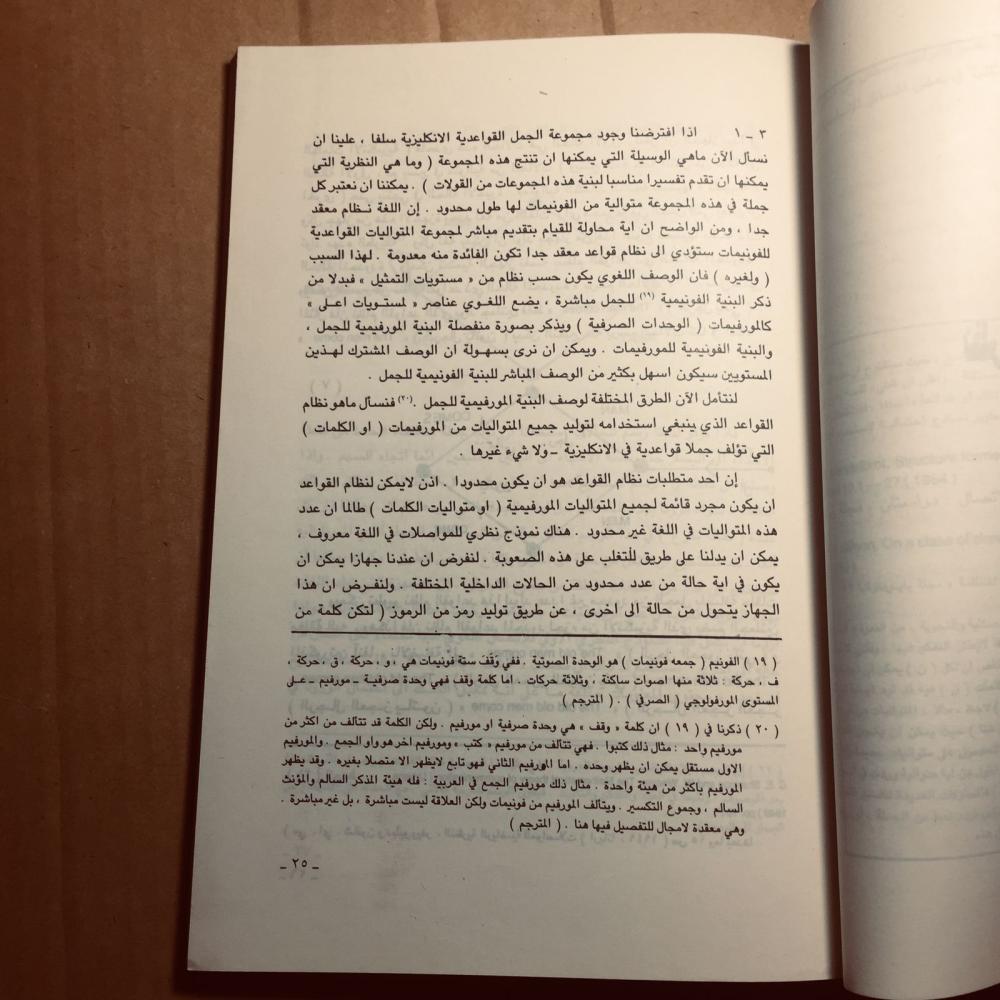 ٣ ـ ١ اذا افترضنا وجود مجموعة الجمل القواعدية الانكليزية سلفا ، علينا ان
نسأل الآن ماهي الوسيلة التي يمكنها ان تنتج هذه المجموعة ( وما هي النظرية التي
يمكنها ان تقدم تفسيرا مناسبا لبنية هذه المجموعات من القولات ) . يمكننا ان نعتبر كل
جملة في هذه المجموعة متوالية من الفونيمات لها طول محدود . إن اللغة نـظام معقد
جدا ، ومن الواضح ان اية محاولة للقيام بتقديم مباشر لمجموعة المتواليات القواعدية
للفونيمات ستؤدي الى نظام قواعد معقد جدا تكون الفائدة منه معدومة . لهذا السبب
( ولغيره ) فان الوصف اللغوي يكون حسب نظام من « مستويات التمثيل » فبدلا من
ذكر البنية الفونيمية (١٩) للجمل مباشرة ، يضع اللغـوي عناصر « لمستـويات اعـلى »
كالمورفيمات ( الوحدات الصرفية ) ويذكر بصورة منفصلة البنية المورفيمية للجمل ،
والبنية الفونيمية للمورفيمات . ويمكن ان نرى بسهـولة ان الوصف المشترك لهـذين
المستويين سيكون اسهل بكثير من الوصف المباشر للبنية الفونيمية للجمل .
لنتأمل الآن الطرق المختلفة لوصف البنية المورفيمية للجمل .(٢٠) فنسأل ماهو نظام
القواعد الذي ينبغي استخدامه لتوليد جميع المتواليات من المورفيمات ( او الكلمات )
التي تؤلف جملا قواعدية في الانكليزية ـ ولا شيء غيرها .
إن احد متطلبات نظام القواعد هو ان يكون محدودا . اذن لايمكن لنظام القواعد
ان يكون مجرد قائمة لجميع المتواليات المورفيمية ( او متواليات الكلمات ) طالما ان عدد
هذه المتواليات في اللغة غير محدود . هناك نموذج نظري للمواصلات في اللغة معروف ،
يمكن ان يدلنا على طريق للتغلب على هذه الصعوبة . لنفرض ان عندنا جهازا يمكن ان
يكون في اية حالة من عدد محدود من الحالات الداخلية المختلفة . ولنفـرض ان هذا
الجهاز يتحول من حالة الى اخرى ، عن طريق توليد رمز من الرموز ( لتكن كلمة من
( ١٩ ) الفونيم ( جمعه فونيمات ) هو الوحدة الصوتية . ففي وَقَفَ ستة فونيمات هي ، و ، حركة ، ق ، حركة ،
ف ، حركة : ثلاثة منها اصوات ساكنة ، وثلاثة حركات . اما كلمة وقف فهي وحدة صرفيـة ـ مورفيم ـ عـلى
المستوى المورفولوجي ( الصرفي ) . ( المترجم )
( ٢٠ ) ذكرنا في ( ١٩ ) ان كلمة « وقف » هي وحدة صرفية او مورفيم . ولكن الكلمة قد تتألف من اكثر من
مورفيم واحد : مثال ذلك كتبوا . فهي تتألف من مورفيم « كتب » ومورفيم اخر هو واو الجمع . والمورفيم
الاول مستقل يمكن ان يظهر وحده . اما المورفيم الثاني فهو تابع لايظهر الا متصلا بغيره . وقد يظهر
المورفيم باكثر من هيئة واحدة . مثال ذلك مورفيم الجمع في العربية : فله هيئة المذكر السالم والمؤنث
السالم ، وجموع التكسير . ويتألف المورفيم من فونيمات ولكن العلاقة ليست مباشرة ، بل غير مباشرة .
وهي معقدة لامجال للتفصيل فيها هنا . ( المترجم )
ـ ٢٥ ـ